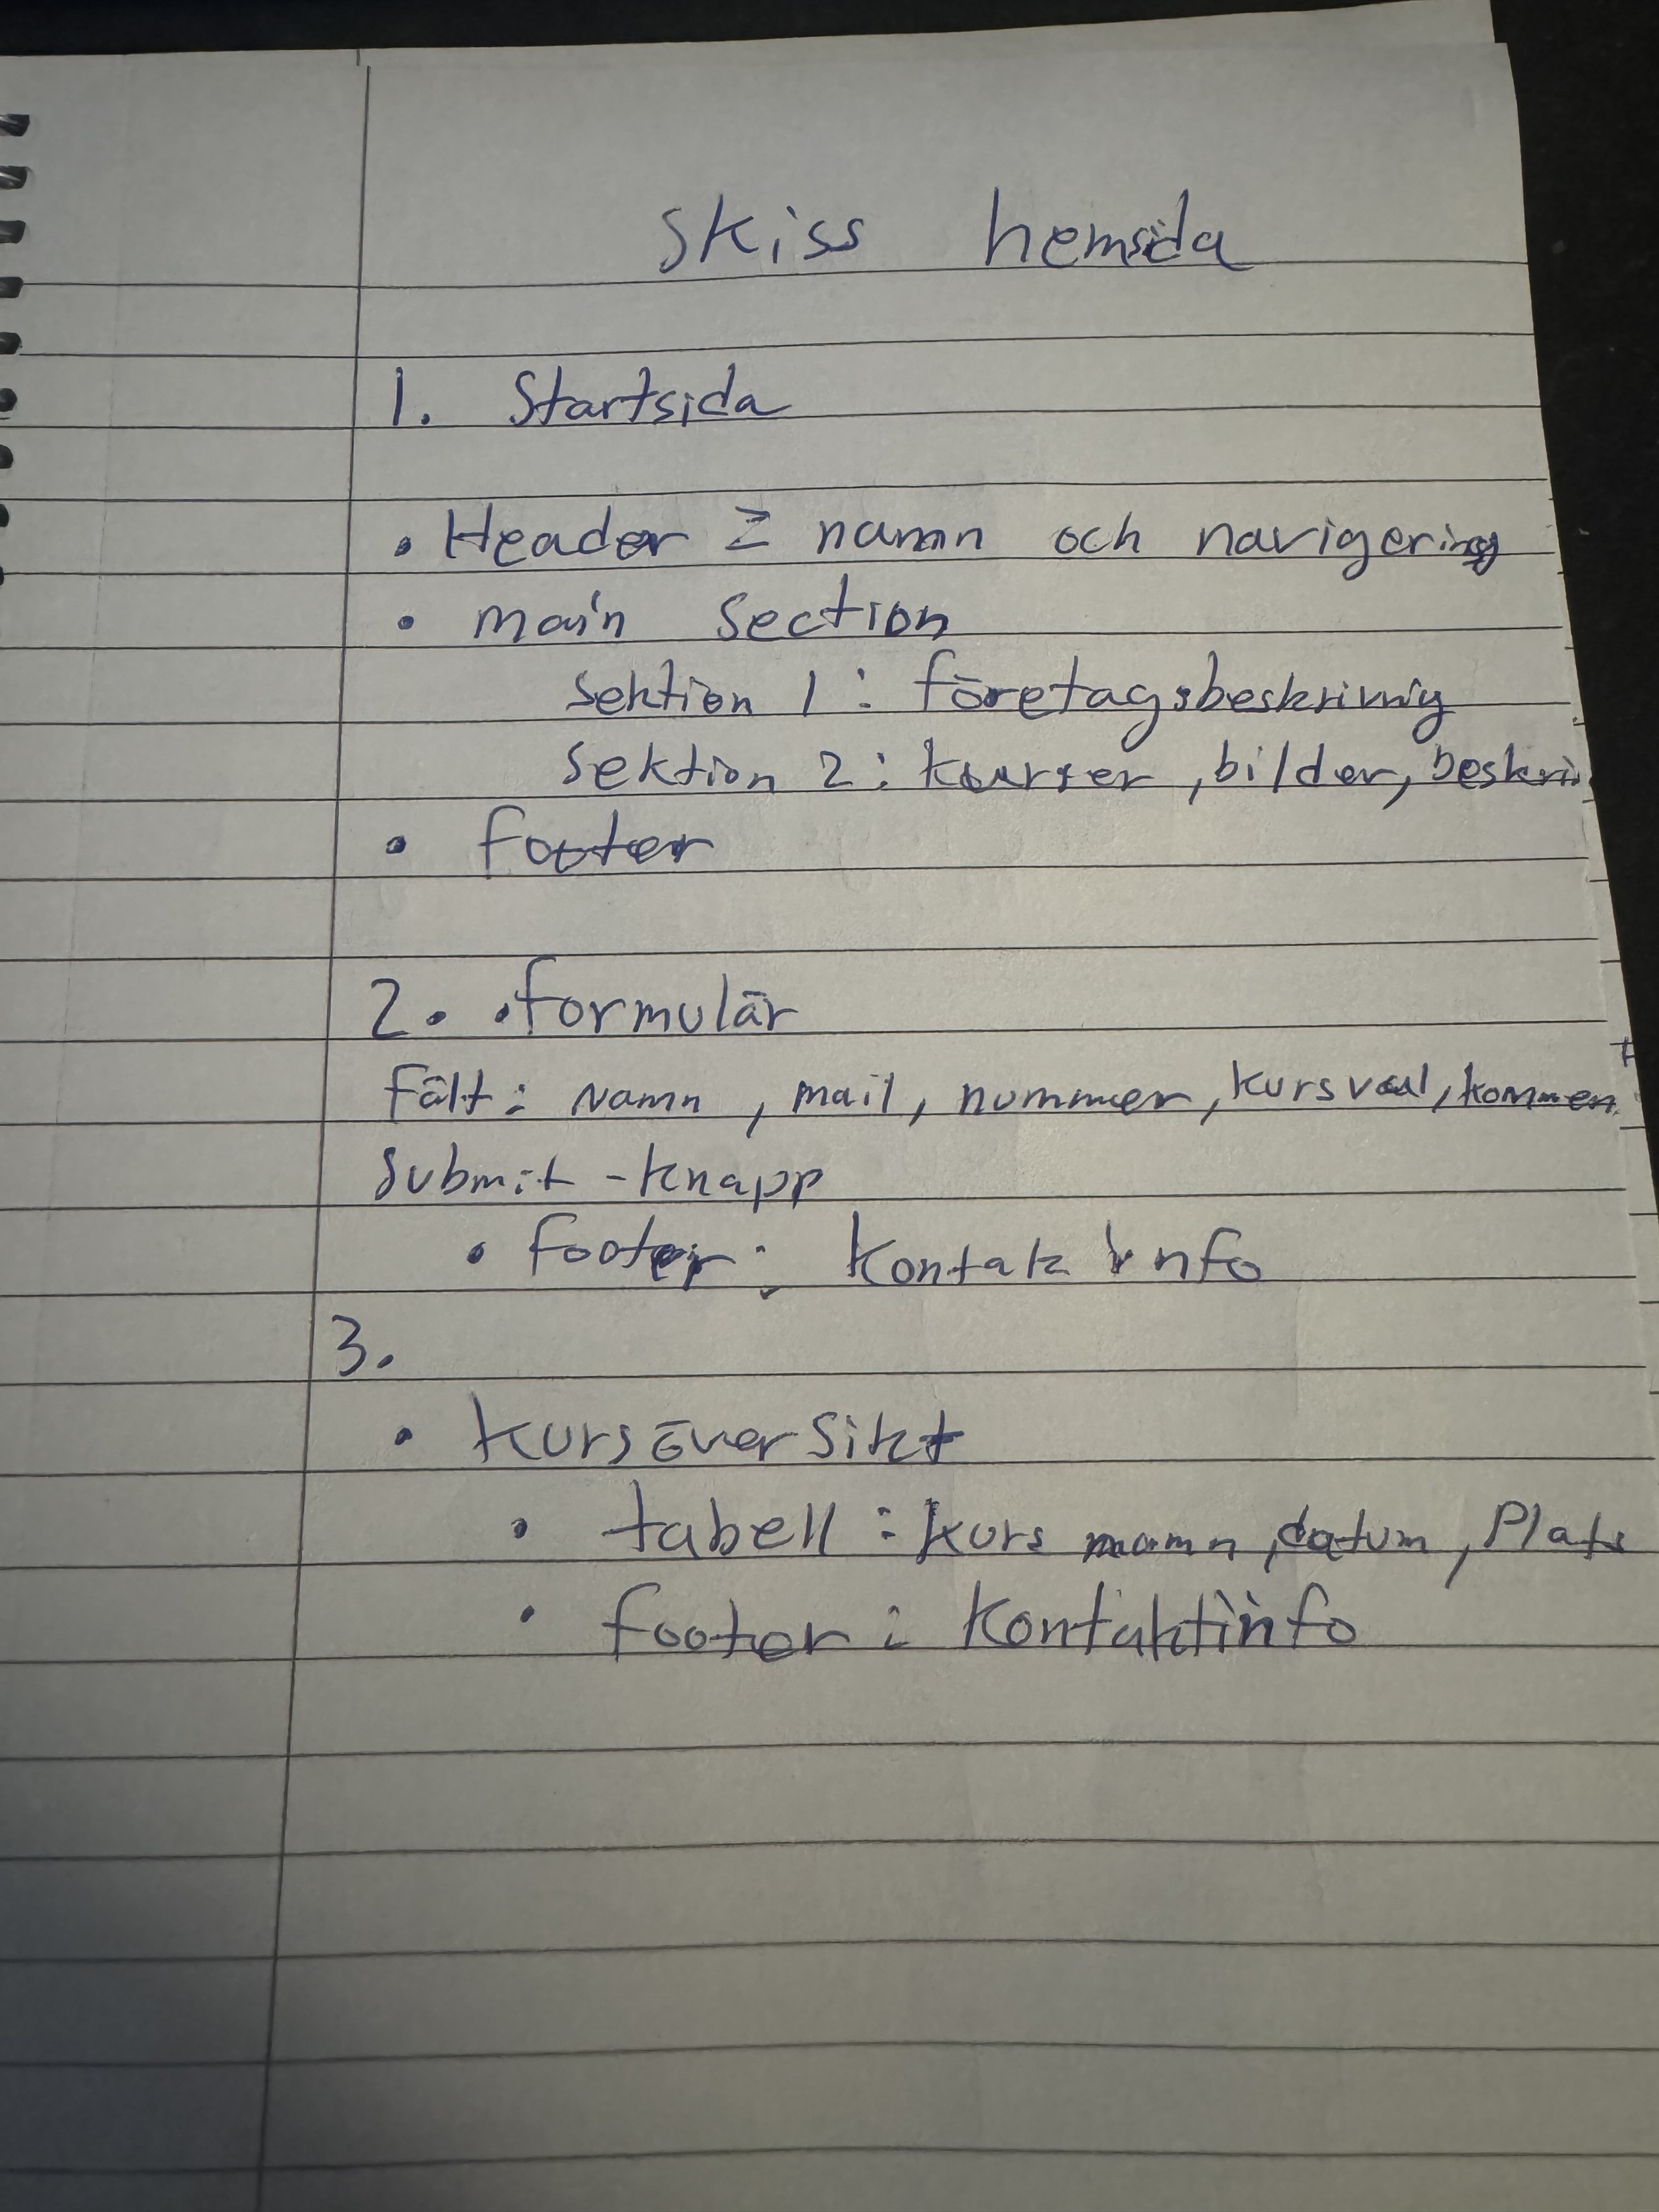 Skiss hemsida
1. Startsida
• Header = namn och navigering
• main section
sektion 1: företagsbeskrivnig
sektion 2: kurser, bilder, beskriv
• footer
2. • formulär
Fält: Namn, mail, nummer, kursval, kommen
t
Submit-knapp
• footer: Kontakt info
3.
• kursöversikt
• tabell: kurs namn, datum, Plats
• footer: Kontaktinfo